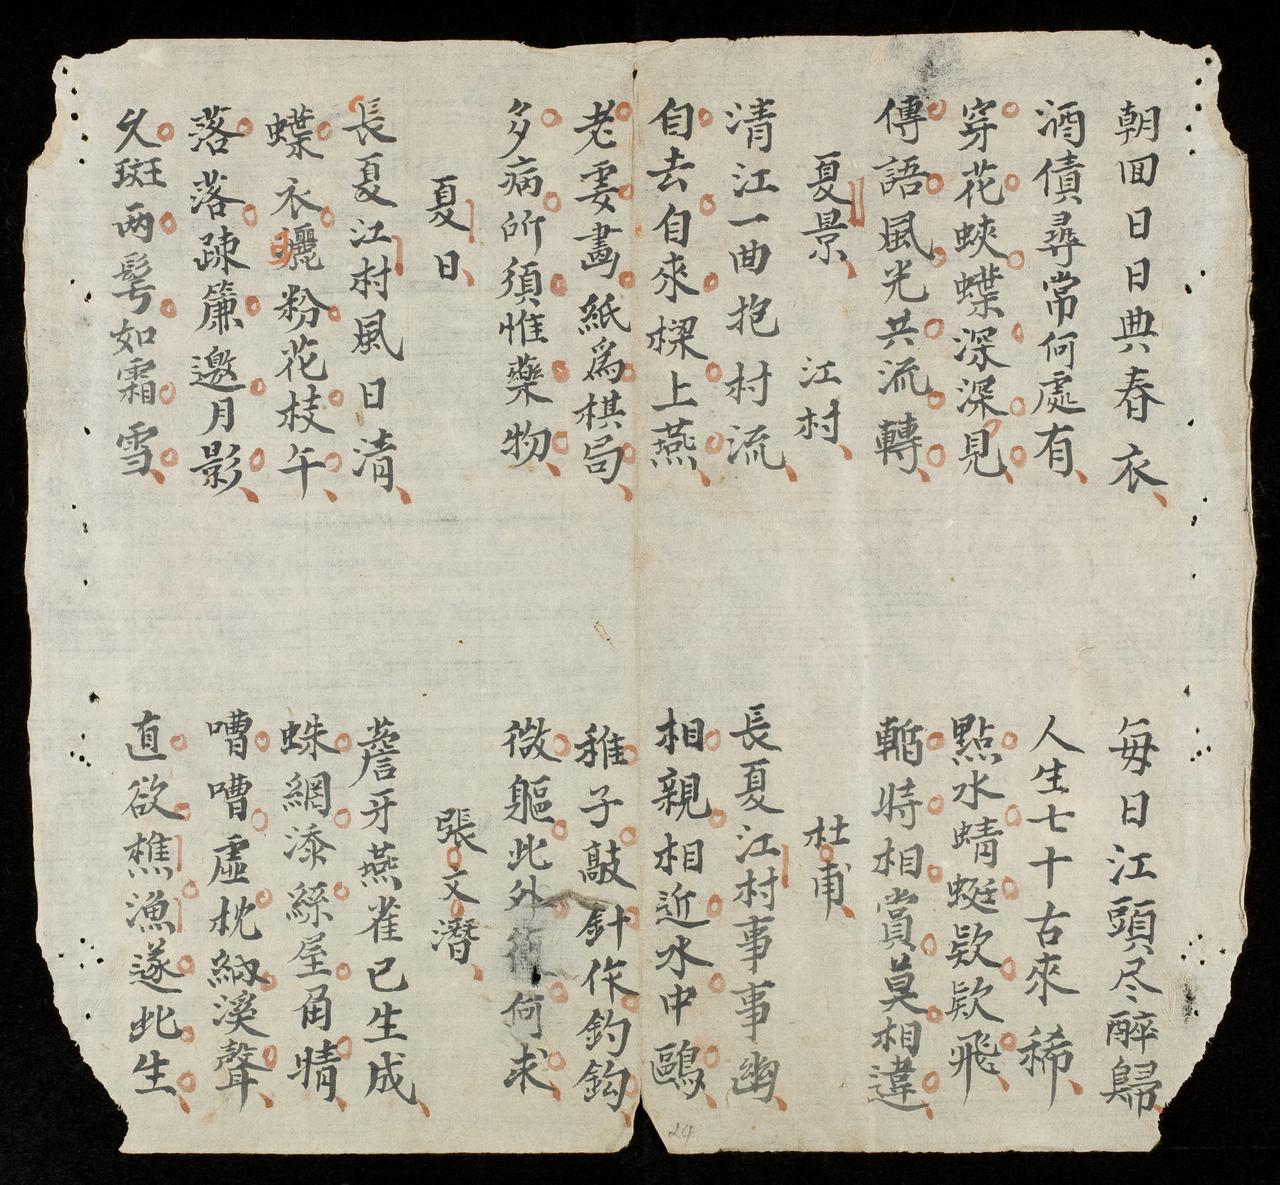 朝囬日日典春衣 每日江頭尽醉歸
酒債尋常何處有 人生七十古來稀
穿花蛺蝶深深見 點水蜻蜓欵欵飛
傳語風光共流轉 暫時相賞莫相違
夏景 江村 杜甫
清江一曲抱村流 長夏江村事事幽
自去自來樑上燕 相親相近水中鷗
老妻畫紙爲棋局 稚子敲針作釣鈎
多病所須惟藥物 微軀此外何求
夏日 張文潛
長夏江村風日清 簷牙燕雀已生成
蝶衣曬粉花枝午 蛛網添絲屋角晴
落落疎簾邀月影 嘈嘈虛枕納溪聲
久斑兩鬢如霜雪 直欲樵漁遂此生
24